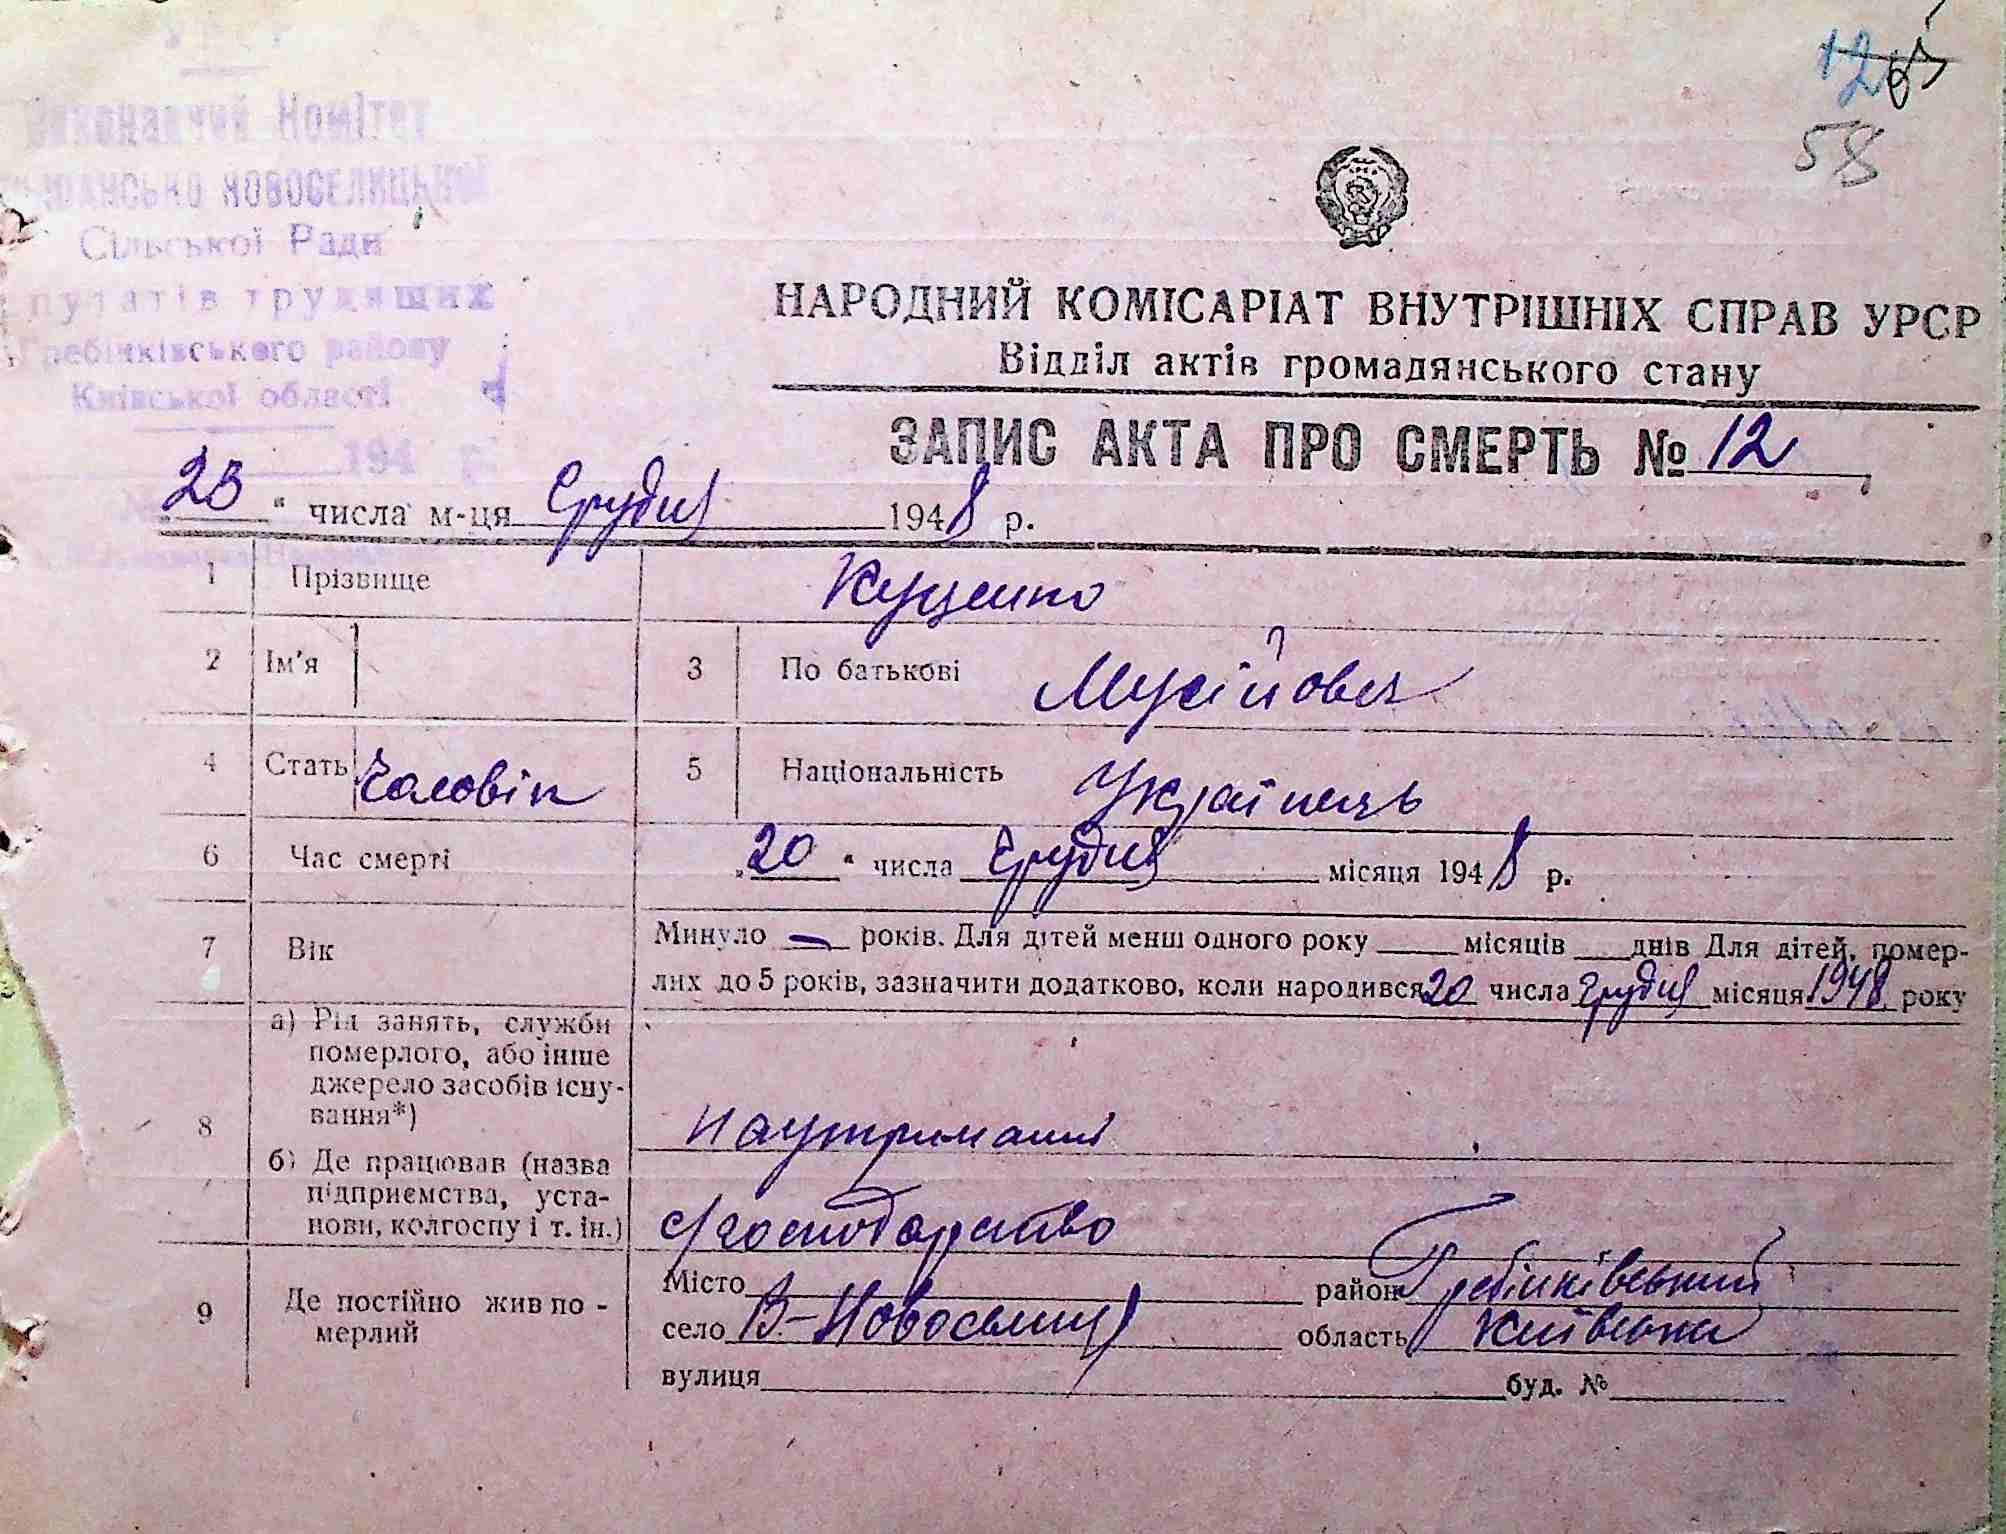 125
58
Виконавчий Комітет
Новоселицької
Сільської Ради
депутатів трудящих
Гребінківського району
Київської області
194 р.
НАРОДНИЙ КОМІСАРІАТ ВНУТРІШНІХ СПРАВ УРСР
Відділ актів громадянського стану
ЗАПИС АКТА ПРО СМЕРТЬ № 12
23 " числа м-ця Грудня 1948 р.
1 Прізвище Куценко
2 Ім'я 3 По батькові Мусійович
4 Стать Чоловік 5 Національність Українець
6 Час смерті „20 " числа Грудня місяця 1948 р.
7 Вік Минуло — років. Для дітей менш одного року ___ місяців ___ днів Для дітей, помер-
лих до 5 років, зазначити додатково, коли народився 20 числа Грудня місяця 1948 року
8 а) Рід занять, служби
померлого, або інше
джерело засобів існу-
вання*) на утриманні
б) Де працював (назва
підприємства, уста-
нови, колгоспу і т. ін.) с/господарство
9 Де постійно жив по-
мерлий
Місто район Гребінківський
село В-Новоселиця область Київська
вулиця буд. №